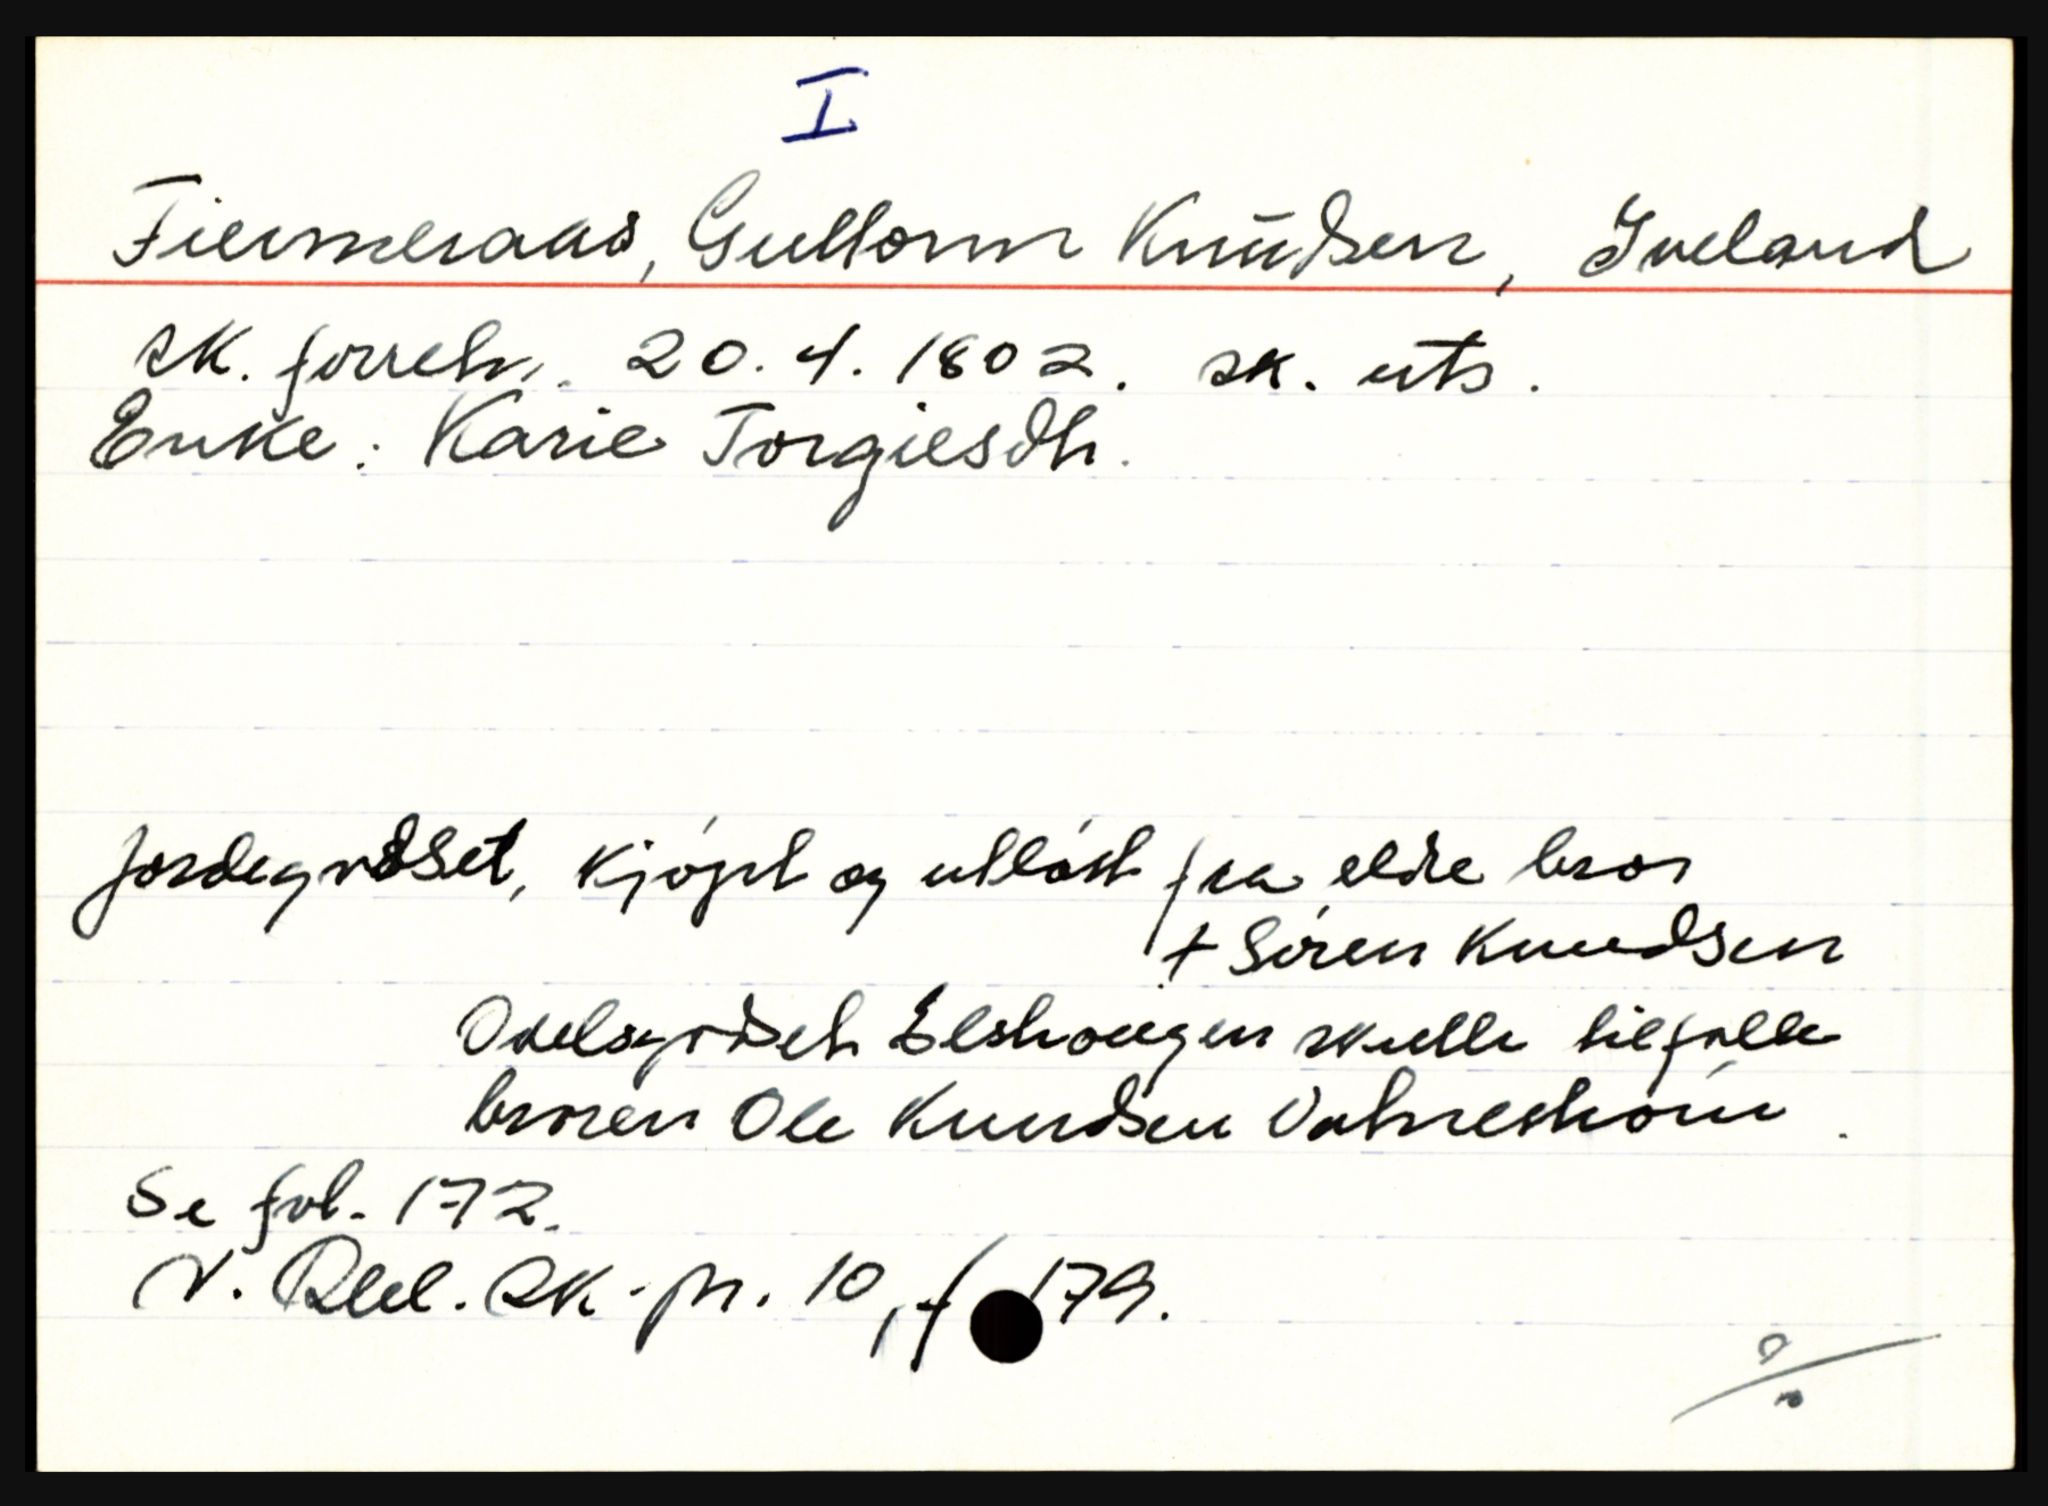 I
Fiermeraas, Guttorm Knudsen, Iveland
sk. forretn. 20.4.1802. sk. uts.
Enke: Karie Torgiesdtr.
Jordegodset, Kjöpt og utlöst fra eldre bror
+ Sören Knudsen
Odelsgodset Elshougen skulle tilfalle
broren Ole Knudsen Vatneström.
Se fol. 172.
N. Rbl. Sk-pr. 10, f 179.